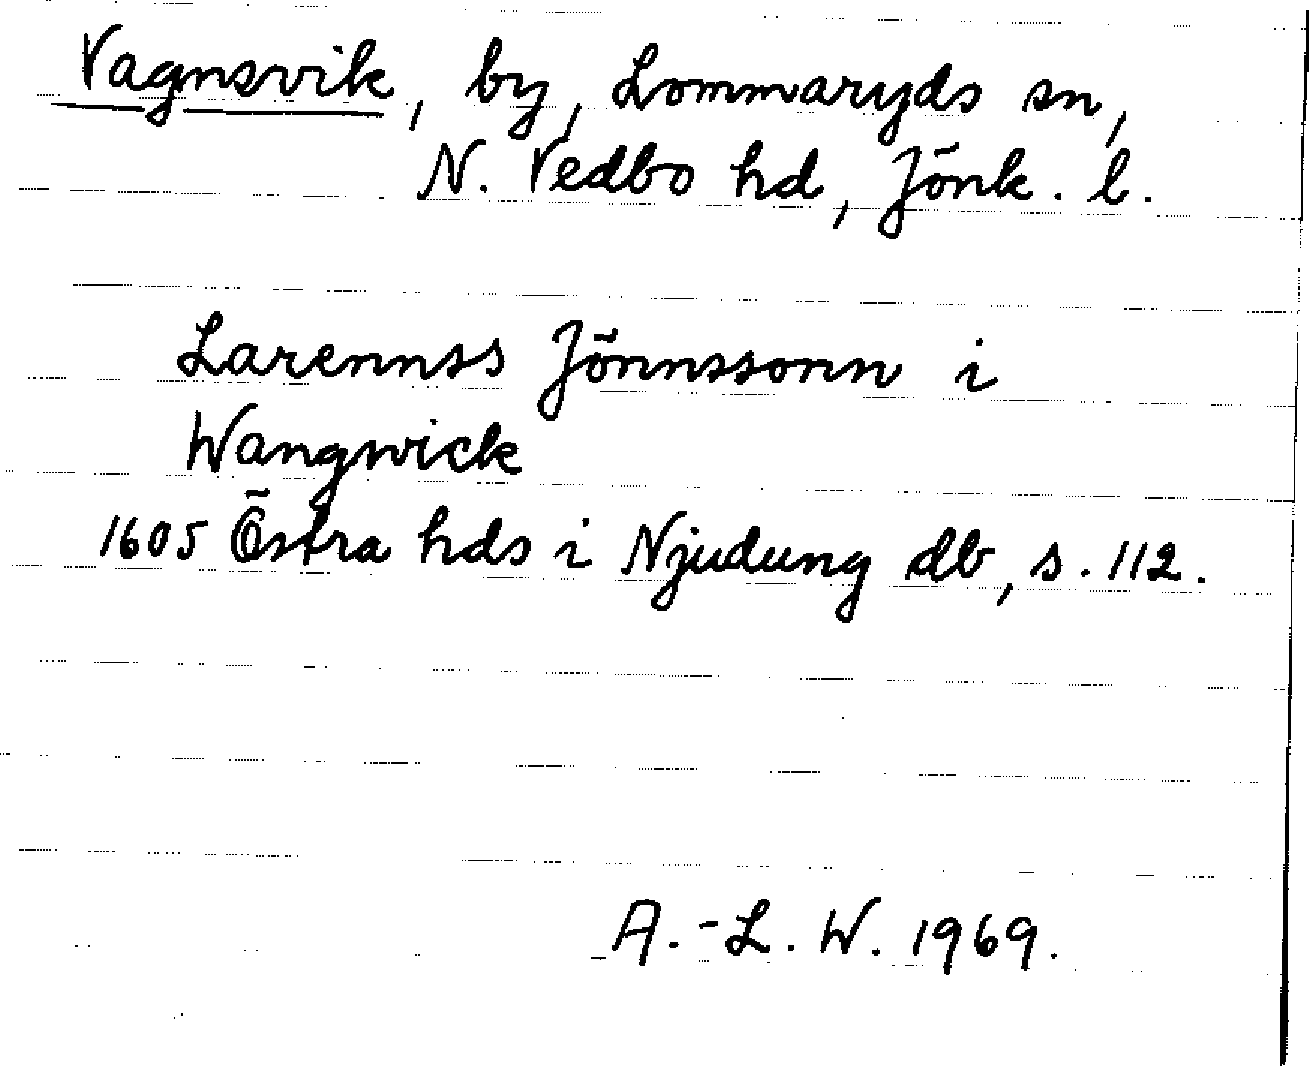 Vagnsvik, by, Lommaryds sn,
N. Vedbo hd, Jönk. l.
Larennss Jönnssonn i
Wangwick
1605 Östra hds i Njudung db, s. 112.
A.-L. W. 1969.